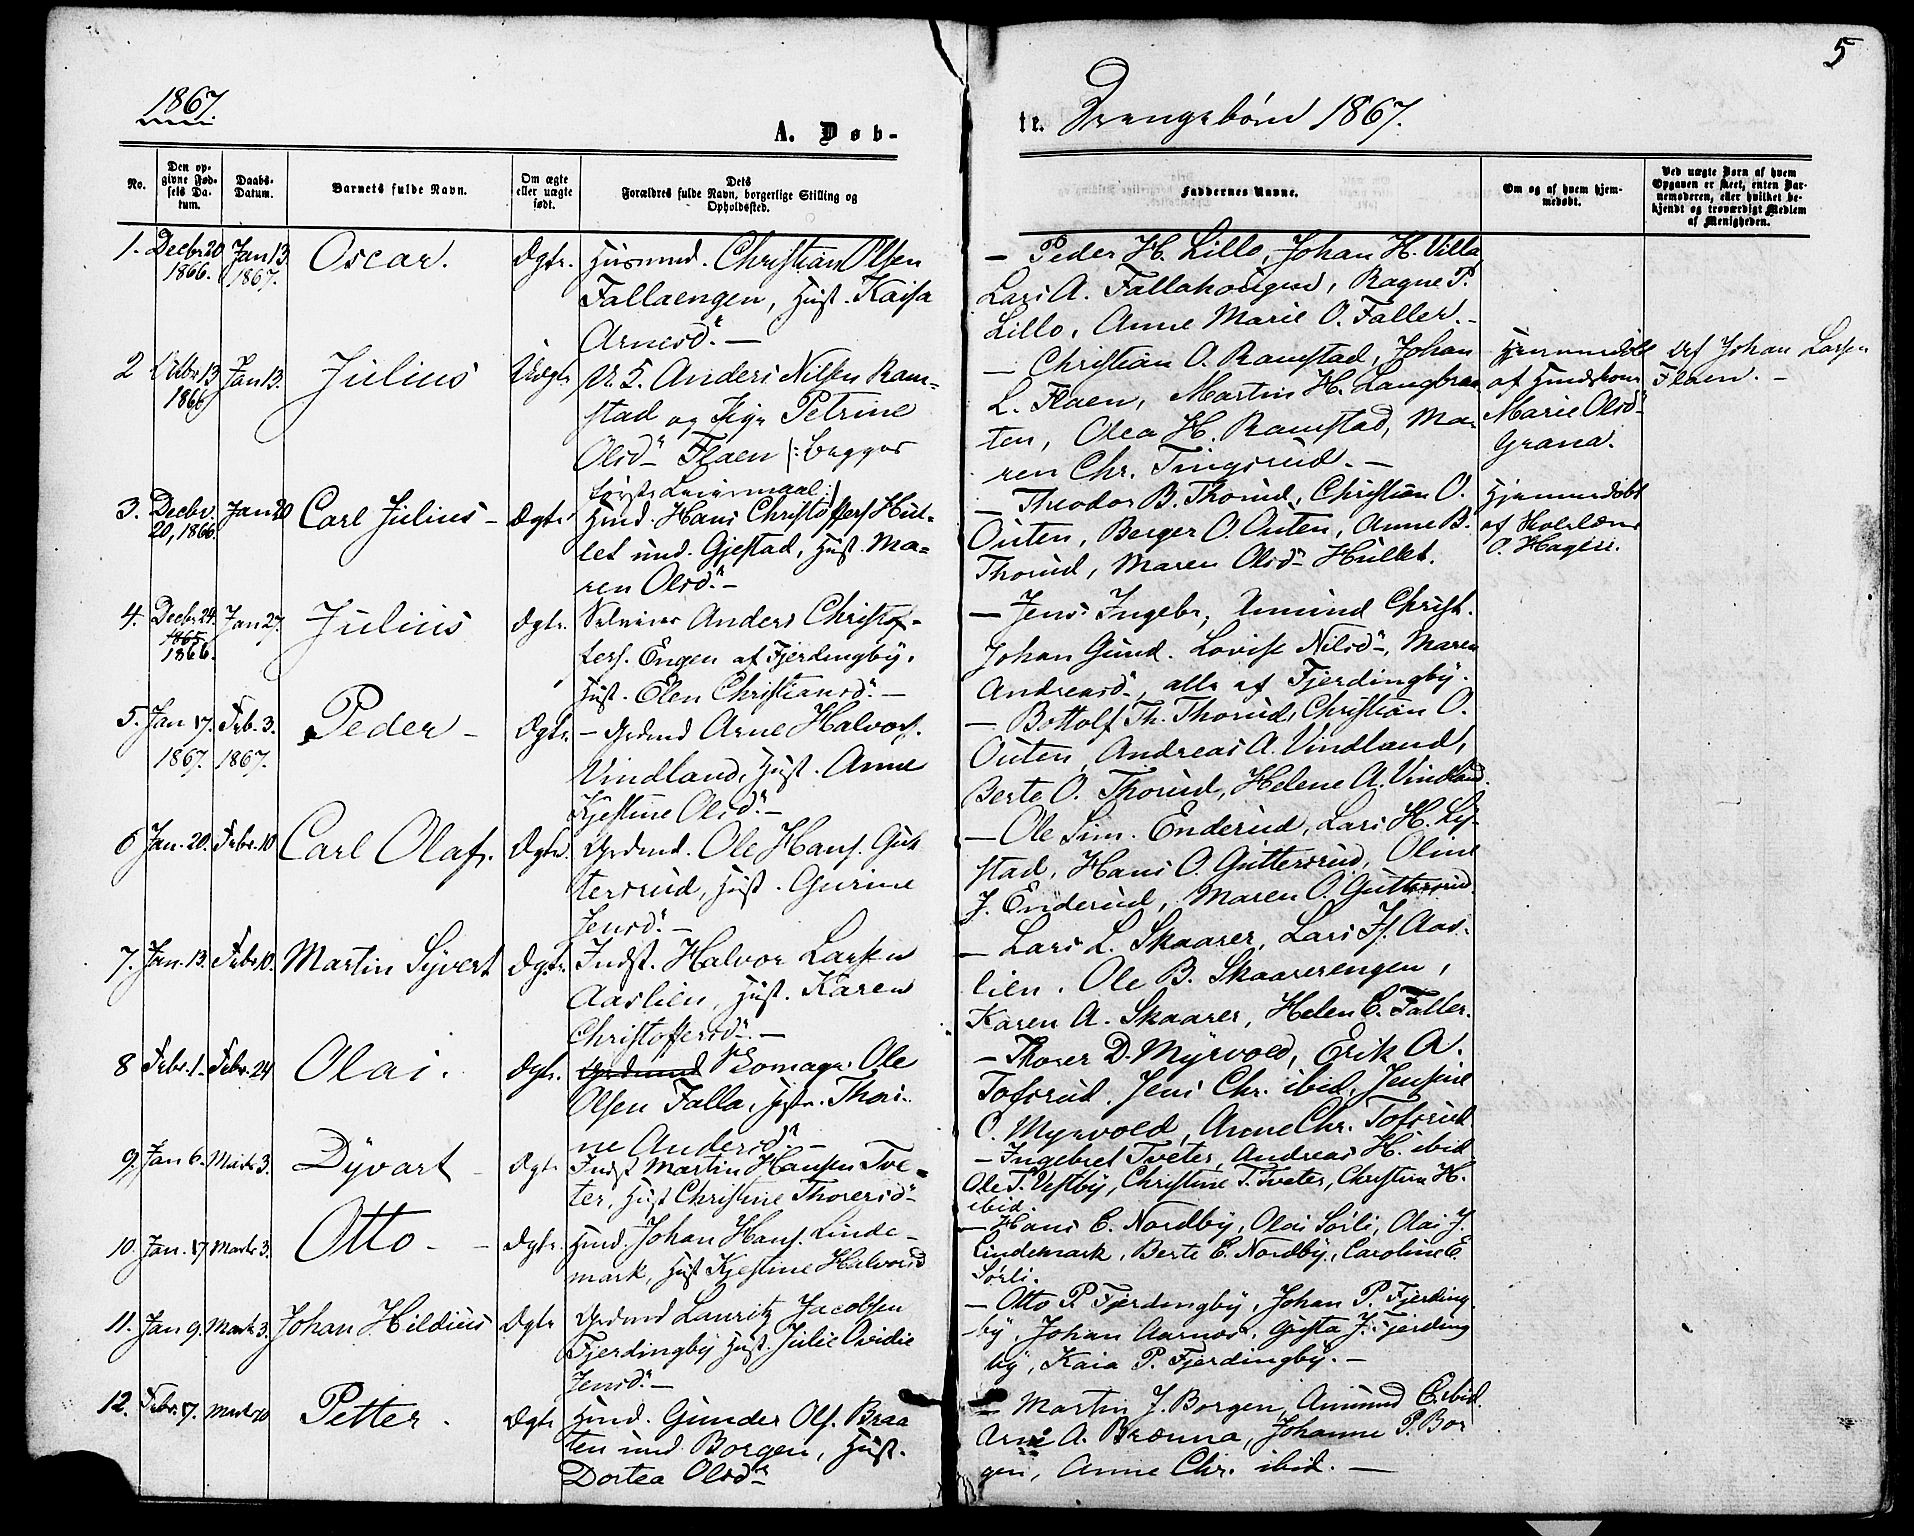 5
1867.
A. Døb-
te. Drengebørn 1867.
No.
Den op-
givne Fød-
sels Da-
tum.
Daabs-
Datum.
Barnets fulde Navn.
Om ægte
eller uægte
født.
Dets
Forældres fulde Navn, borgerlige Stilling og
Opholdssted.
Faddernes Navne.
Om og af hvem hjem-
medøbt.
Ved uægte Børn af hvem
Opgaven er skeet, enten Bar-
nemoderen, eller hvilket be-
kjendt og troværdigt Medlem
af Menigheden.
1. Decbr 20 Jan 13 Oscar. Ægte. Husmd. Christian Olsen
1866. 1867. Fallaengen, Hust. Kaisa
Arnesd. —
— Peder H. Lillo, Johan H. Villa,
Lars A. Fallahougen, Ragne P.
Lillo, Anne Marie O. Faller. —
2 13 Jan 13. Julius Uægte U. K. Anders Nilsen Ram-
1866 stad og Pige Petrine
Olsd. Flaen /: begges
første Leiermaal :/
— Christian O. Ramstad, Johan
L. Flaen, Martin H. Langbraa-
ten, Olea H. Ramstad, Ma-
ren Chr. Tingsrud. —
Hjemmedøbt
af
Marie Olsd.
Grana.
Af Johan Larsen
Flaen. —
3. Decbr. Jan 20 Carl Julius — Ægte Husd. Hans Christoffers. Hul-
20, 1866. let und. Gjestad, Hust. Ma-
ren Olsd. —
— Theodor B. Thorud, Christian O.
Outen, Berger O. Outen, Anne B.
Thorud, Maren Olsd. Hullet.
Hjemmedøbt
af Skolelærer
O. Hagen.
4. Decbr 24. Jan 27. Julius Ægte. Selveier Anders Christof-
1865
1866. fers. Engen af Fjerdingby,
Hust. Elen Christiansd. —
— Jens Ingebr, Amund Christ.
Johan Gund. Lovise Nilsd., Maren
Andreasd., alle af Fjerdingby.
5. Jan 17. Feb. 3. Peder — Ægte. — Grdmd Arne Halvors.
1867. 1867. Vindland, Hust. Anne
Kjestine Olsd. —
— Bottolf Th. Thorud, Christian O.
Outen, Andreas A. Vindland,
Berte O. Thorud, Helene A. Vindland.
6 Jan. 20. Febr. 10 Carl Olaf. Ægte. Grdmd. Ole Hans. Gut-
tersrud, Hust. Gurine
Jensd. —
— Ole Sim. Enderud, Lars H. Ly-
stad, Hans O. Guttersrud, Oline
J. Enderud, Maren O. Guttersrud.
7. Jan. 13. Febr. 10. Martin Syvert Ægte. Indst. Halvor Larsen
Aaslien, Hust. Karen
Christoffersd. —
— Lars L. Skaarer, Lars H. Aas-
lien. Ole B. Skaarerengen,
Karen A. Skaarer, Helen C. Faller.
8 Febr. 1. Febr. 24 Olai. Ægte. Grdmand Skomager Ole
Olsen Falla, Hustr. Thori-
ne Andersd. —
— Thorer D. Myrvold, Erik A.
Tofsrud. Jens Chr. ibid, Jensine
O. Myrvold, Anne Chr. Tofsrud
9. Jan 6. Marts 3. Dyvart — Ægte Indst Martin Hansen Tve-
ter, Hust Christine Thorersd.
— Ingebret Tveter, Andreas H. ibid
Ole T. Vestby, Christine T. Tveter, Christian H.
ibid.
10. Jan. 17 Marts 3. Otto — Ægte. Husd. Johan Hans. Linde-
mark, Hust Kjestine Halvorsd
— Hans C. Nordby, Olai Sørli, Olai J.
Lindemark, Berte C. Nordby, Caroline E
Sørli.
11. Jan 9. Marts 3. Johan Hildius Ægte Grdmd Lauritz Jacobsen
Fjerdingby Hust. Julie Ovidie
Jensd. —
— Otto P. Fjerdingby, Johan P. Fjerding-
by, Johan Aarnes, Gusta J. Fjerding
by, Kaia P. Fjerdingby. —
12. Febr. 17. Marts 10 Petter. Ægte Husd. Gunder Ols. Braa-
ten und Borgen, Hust.
Dortea Olsd.
— Martin J. Borgen, Amund E. ibid.
Arne A. Brænna, Johanne P. Bor
gen, Anne Chr. ibid. —